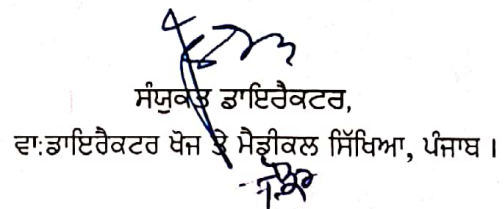 ਸੰਯੁਕਤ ਡਾਇਰੈਕਟਰ,
ਵਾ:ਡਾਇਰੈਕਟਰ ਖੋਜ ਤੇ ਮੈਡੀਕਲ ਸਿੱਖਿਆ, ਪੰਜਾਬ ।